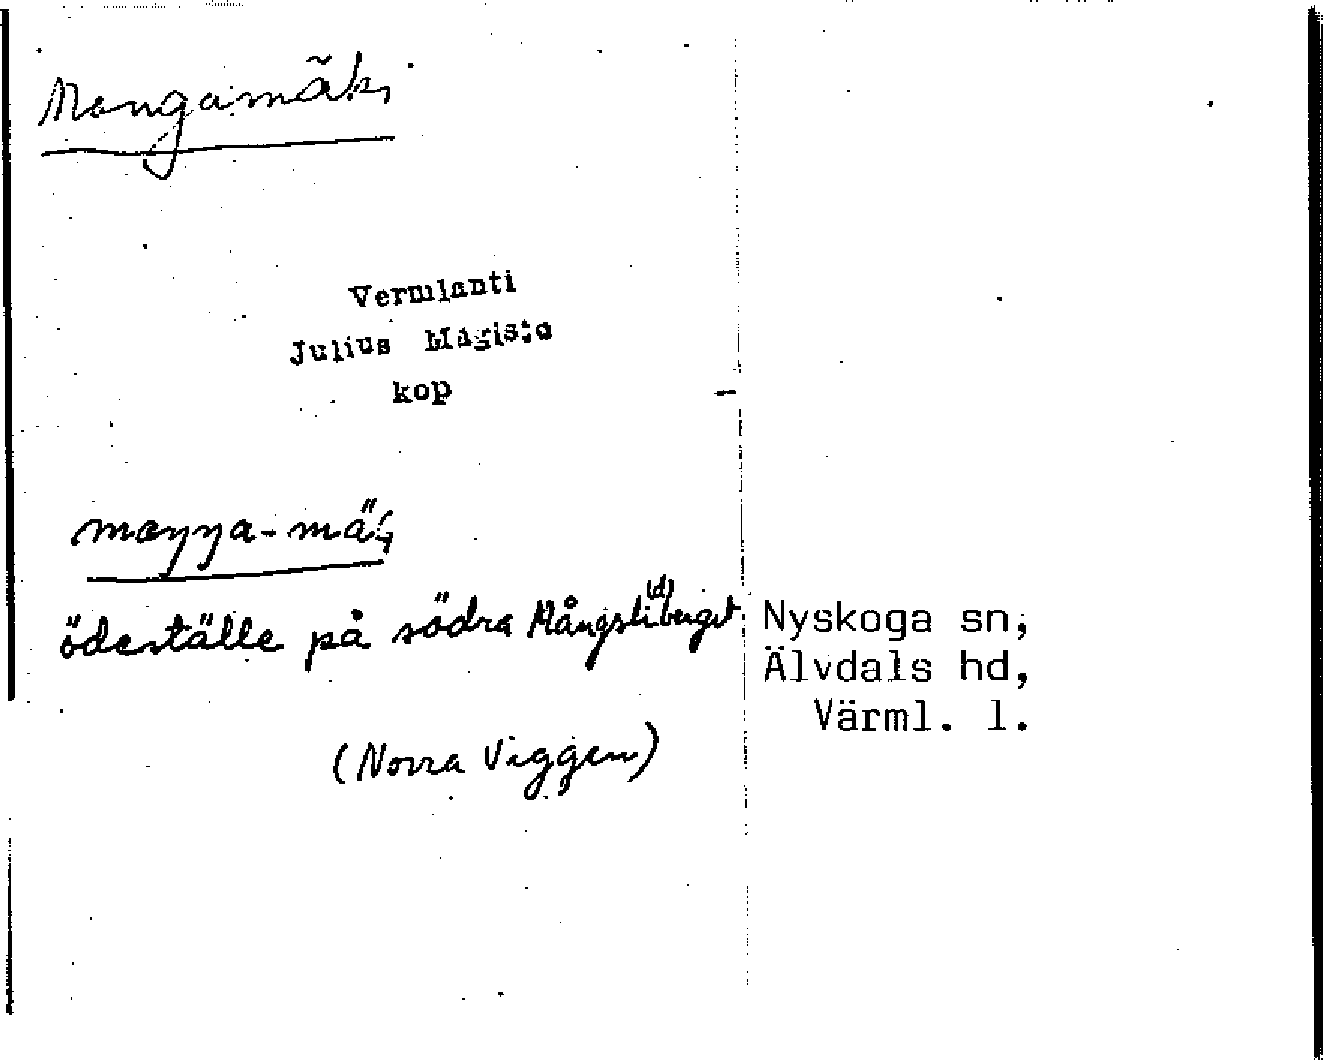 Mangamäki
Vermlanti
Julius Mägiste
kop
maŋŋa-mäk̆i
ödeställe på södra Mångsli(d)berget
(Norra Viggen)
Nyskoga sn,
Älvdals hd,
Värml. l.